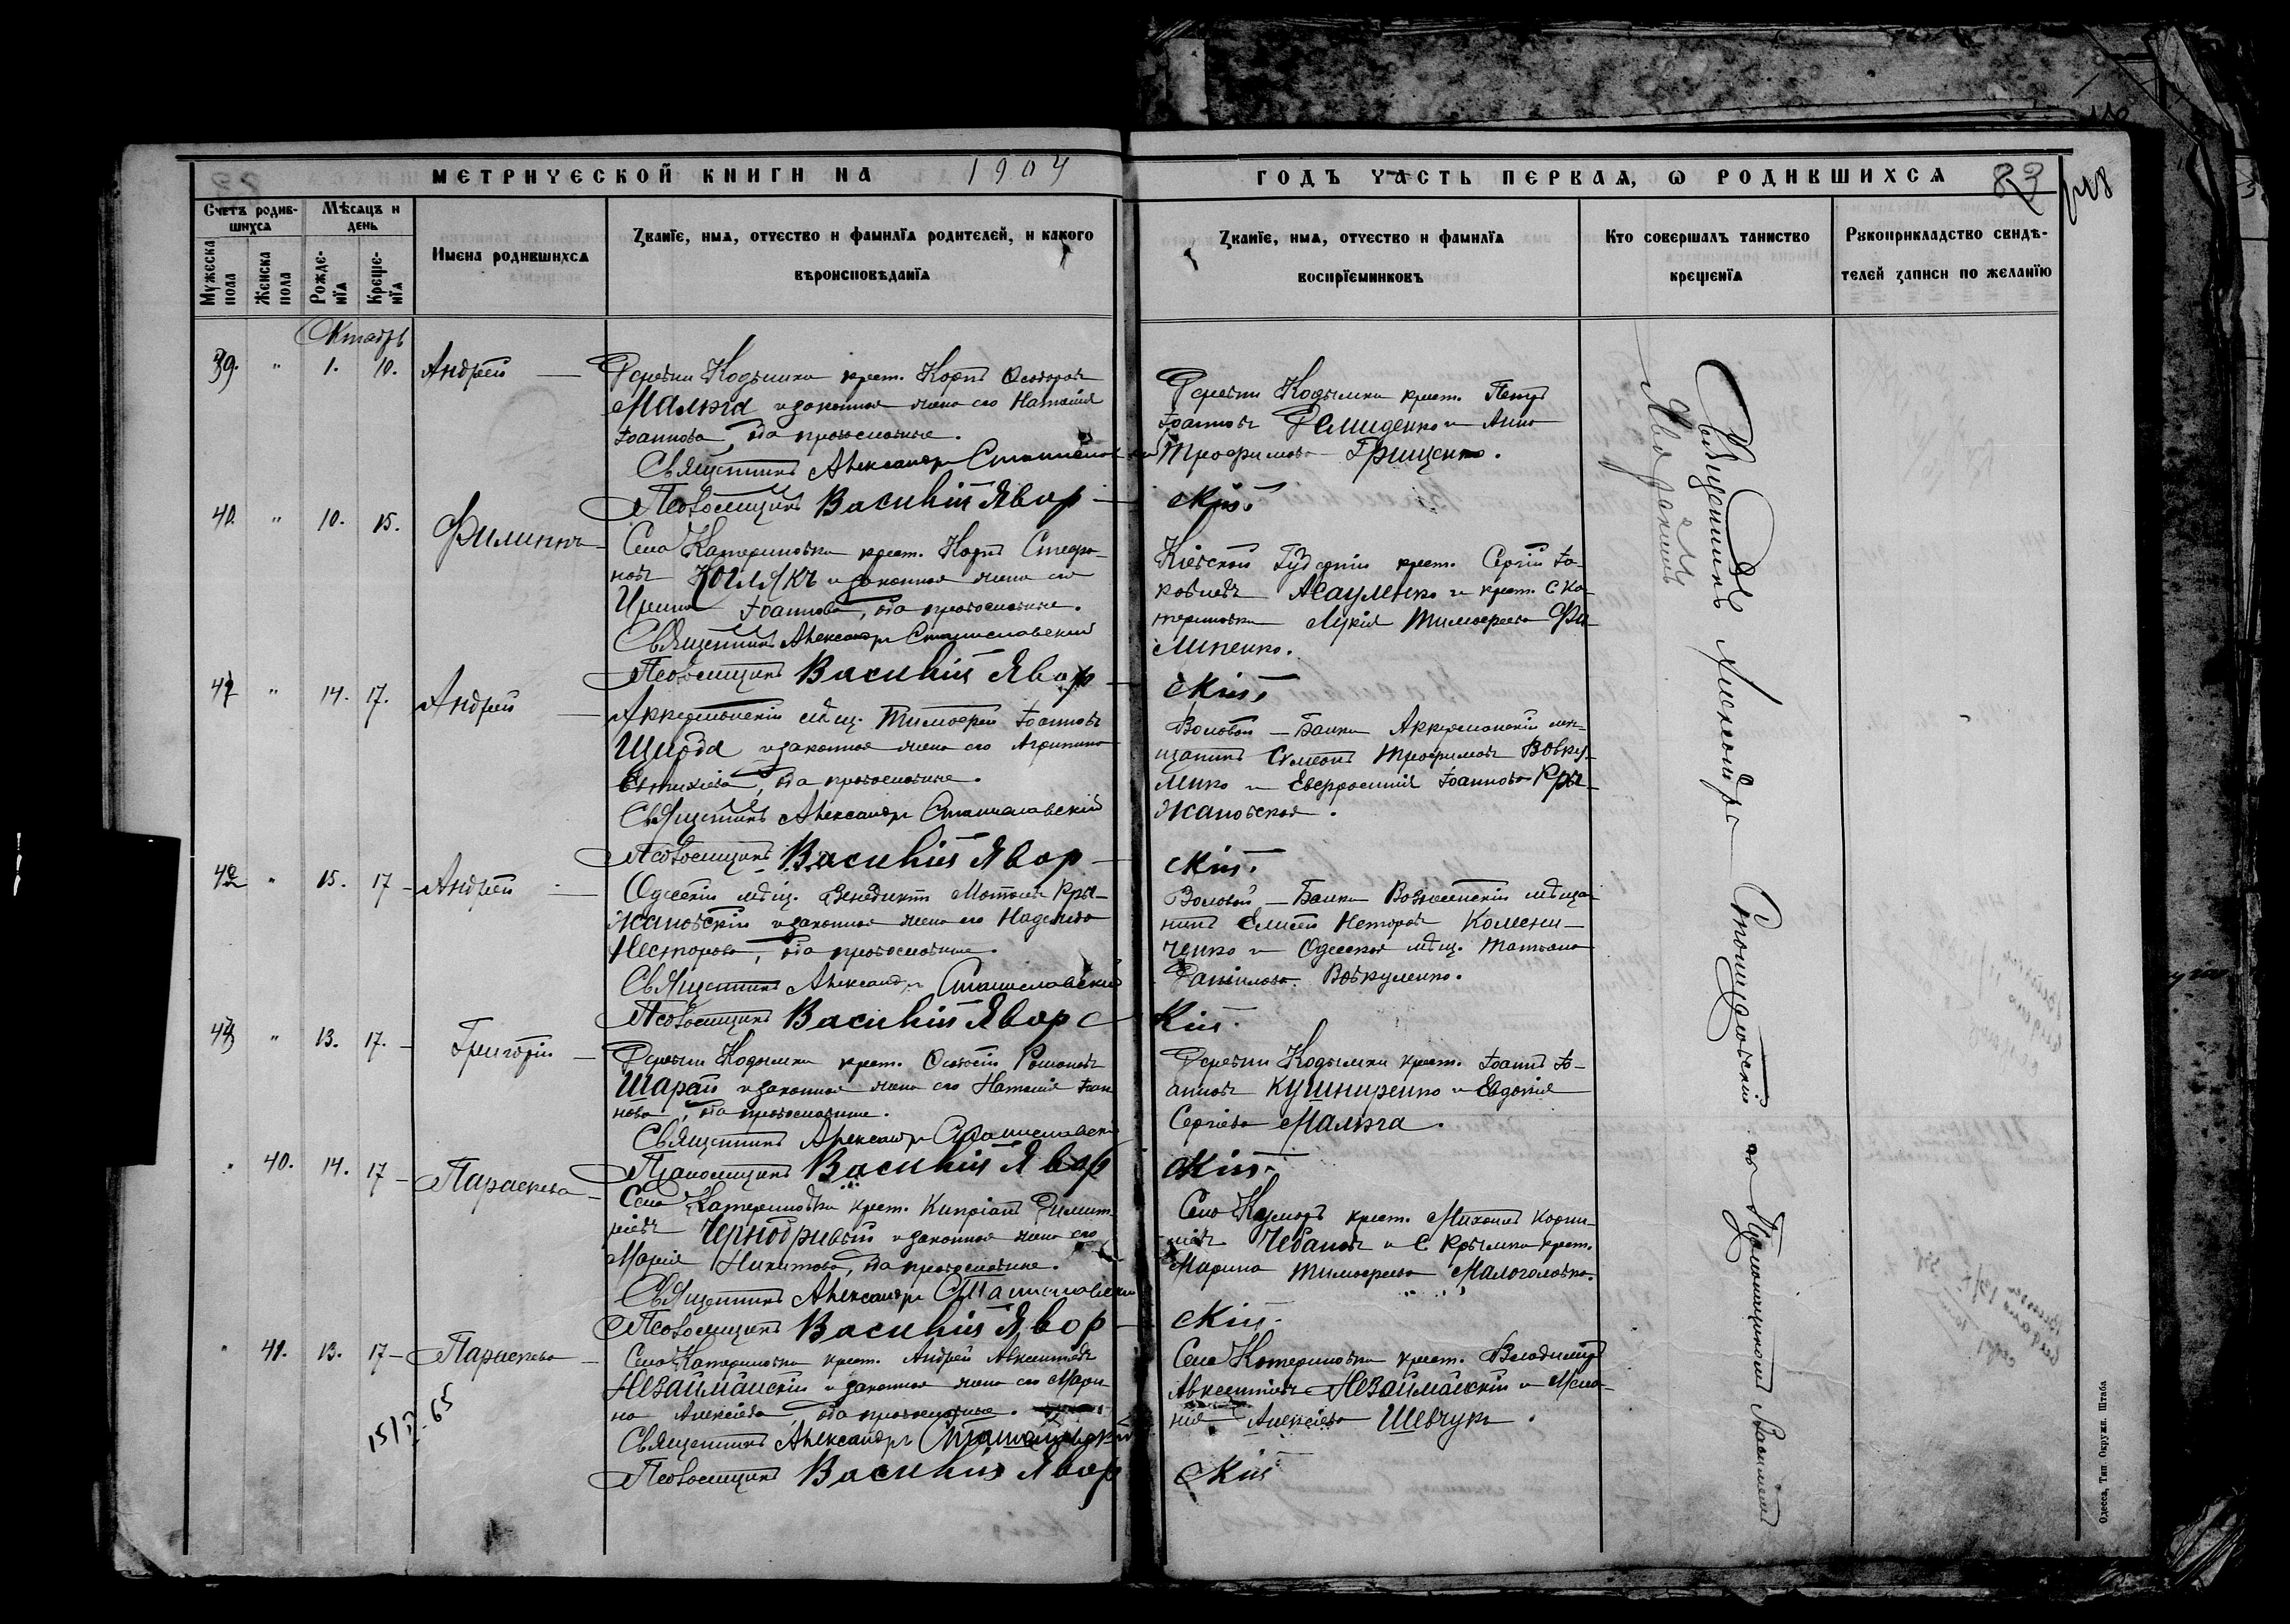 МЕТРИЧЕСКОЙ КНИГИ НА 1904
ГОДЪ ЧАСТЬ ПЕРВАЯ, Ѡ РОДИВШИХСЯ
83
Счетъ родив-
шихся
Мѣсяцъ и
день
Мужеска
пола
Женска
пола
Рожде-
нія
Креще-
нія
Имена родившихся
Званіе, имя, отчество и фамилія родителей, и какого
вѣроисповѣданія
Званіе, имя, отчество и фамилія
воспріемниковъ
Кто совершалъ таинство
крещенія
Рукоприкладство свидѣ-
телей записи по желанію
Октябрь
39. " 1. 10. Андрей
Деревни Кодымки крест. Карпъ Ѳеодоровъ
Мальга и законная жена его Наталія
Іоаннова, оба православные.
Священникъ Александръ Станиславскій
Псаломщикъ Василій Яворскій.
Деревни Кодымки крест. Петръ
Іоанновъ Демиденко и Анна
Трофимова Грищенко.
40. " 10. 15. Филиппъ
Села Катериновки крест. Карпъ Стефа-
новъ и законная жена его
Ирина Іоаннова, оба православные.
Священникъ Александръ Станиславскій
Псаломщикъ Василій Яворскій.
Кіевской Губерніи крест. Сергій Іа-
ковлевъ Асауленко и крест. с Ка-
териновки Лукія Тимофеева Фи-
липенко.
41 " 14. 17. Андрей
Аккерманскій мѣщ. Тимофей Іоанновъ
Щирба и законная жена его Агрипина
Евтихіева, оба православные.
Священникъ Александръ Станиславскій
Псаломщикъ Василій Яворскій.
Воловой-Балки Аккерманскій мѣ-
щанинъ Симеонъ Трофимовъ Вовку-
ленко и Евфросинія Іоаннова Кры-
жановская.
42 " 15. 17 Андрей
Одесскій мѣщ. Венедиктъ Матвѣевъ Кры-
жановскій и законная жена его Надежда
Несторова, оба православные.
Священникъ Александръ Станиславскій
Псаломщикъ Василій Яворскій.
Воловой-Балки Вознесенскій мѣща-
нинъ Елисей Несторовъ Коменн-
ченко и Одесская мѣщ. Татьяна
Даніилова Вовкуленко.
43 " 13. 17. Григорій
Деревни Кодымки крест. Ѳеодосій Романовъ
Шарай и законная жена его Наталія Іоан-
нова, оба православные.
Священникъ Александръ Станиславскій
Псаломщикъ Василій Яворскій.
Деревни Кодымки крест. Іоаннъ Іо-
анновъ Кушниренко и Евдокія
Сергіева Мальга.
" 40. 14. 17 Параскева
Села Катериновки крест. Кипріанъ Димит-
ріевъ Чернобривый и законная жена его
Марія Никитова, оба православные.
Священникъ Александръ Станиславскій
Псаломщикъ Василій Яворскій.
Села крест. Михаилъ Корни-
ліевъ Чебановъ и с Крымки крест.
Марина Тимофеева Малоголовка.
" 41. 13. 17 Параскева
Села Катериновки крест. Андрей Авксентіевъ
Незайманскій и законная жена его Мари-
на Алексіева, оба православные.
Священникъ Александръ Станиславскій
Псаломщикъ Василій Яворскій
Села Катериновки крест. Владиміръ
Авксентіевъ Незайманскій и Мела-
нія Алексіева Шевчукъ.
Священникъ Александръ Станиславскій съ Псаломщикомъ Василіемъ
Яворскимъ
Одесса, Тип. Окружн. Штаба